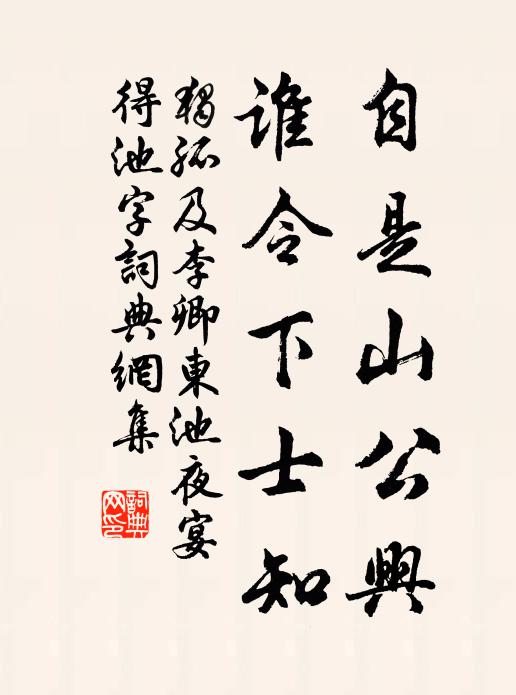 自是山公興
誰令下士知
獨孤及李卿東池夜宴
得池字詞典網集
詞典網印